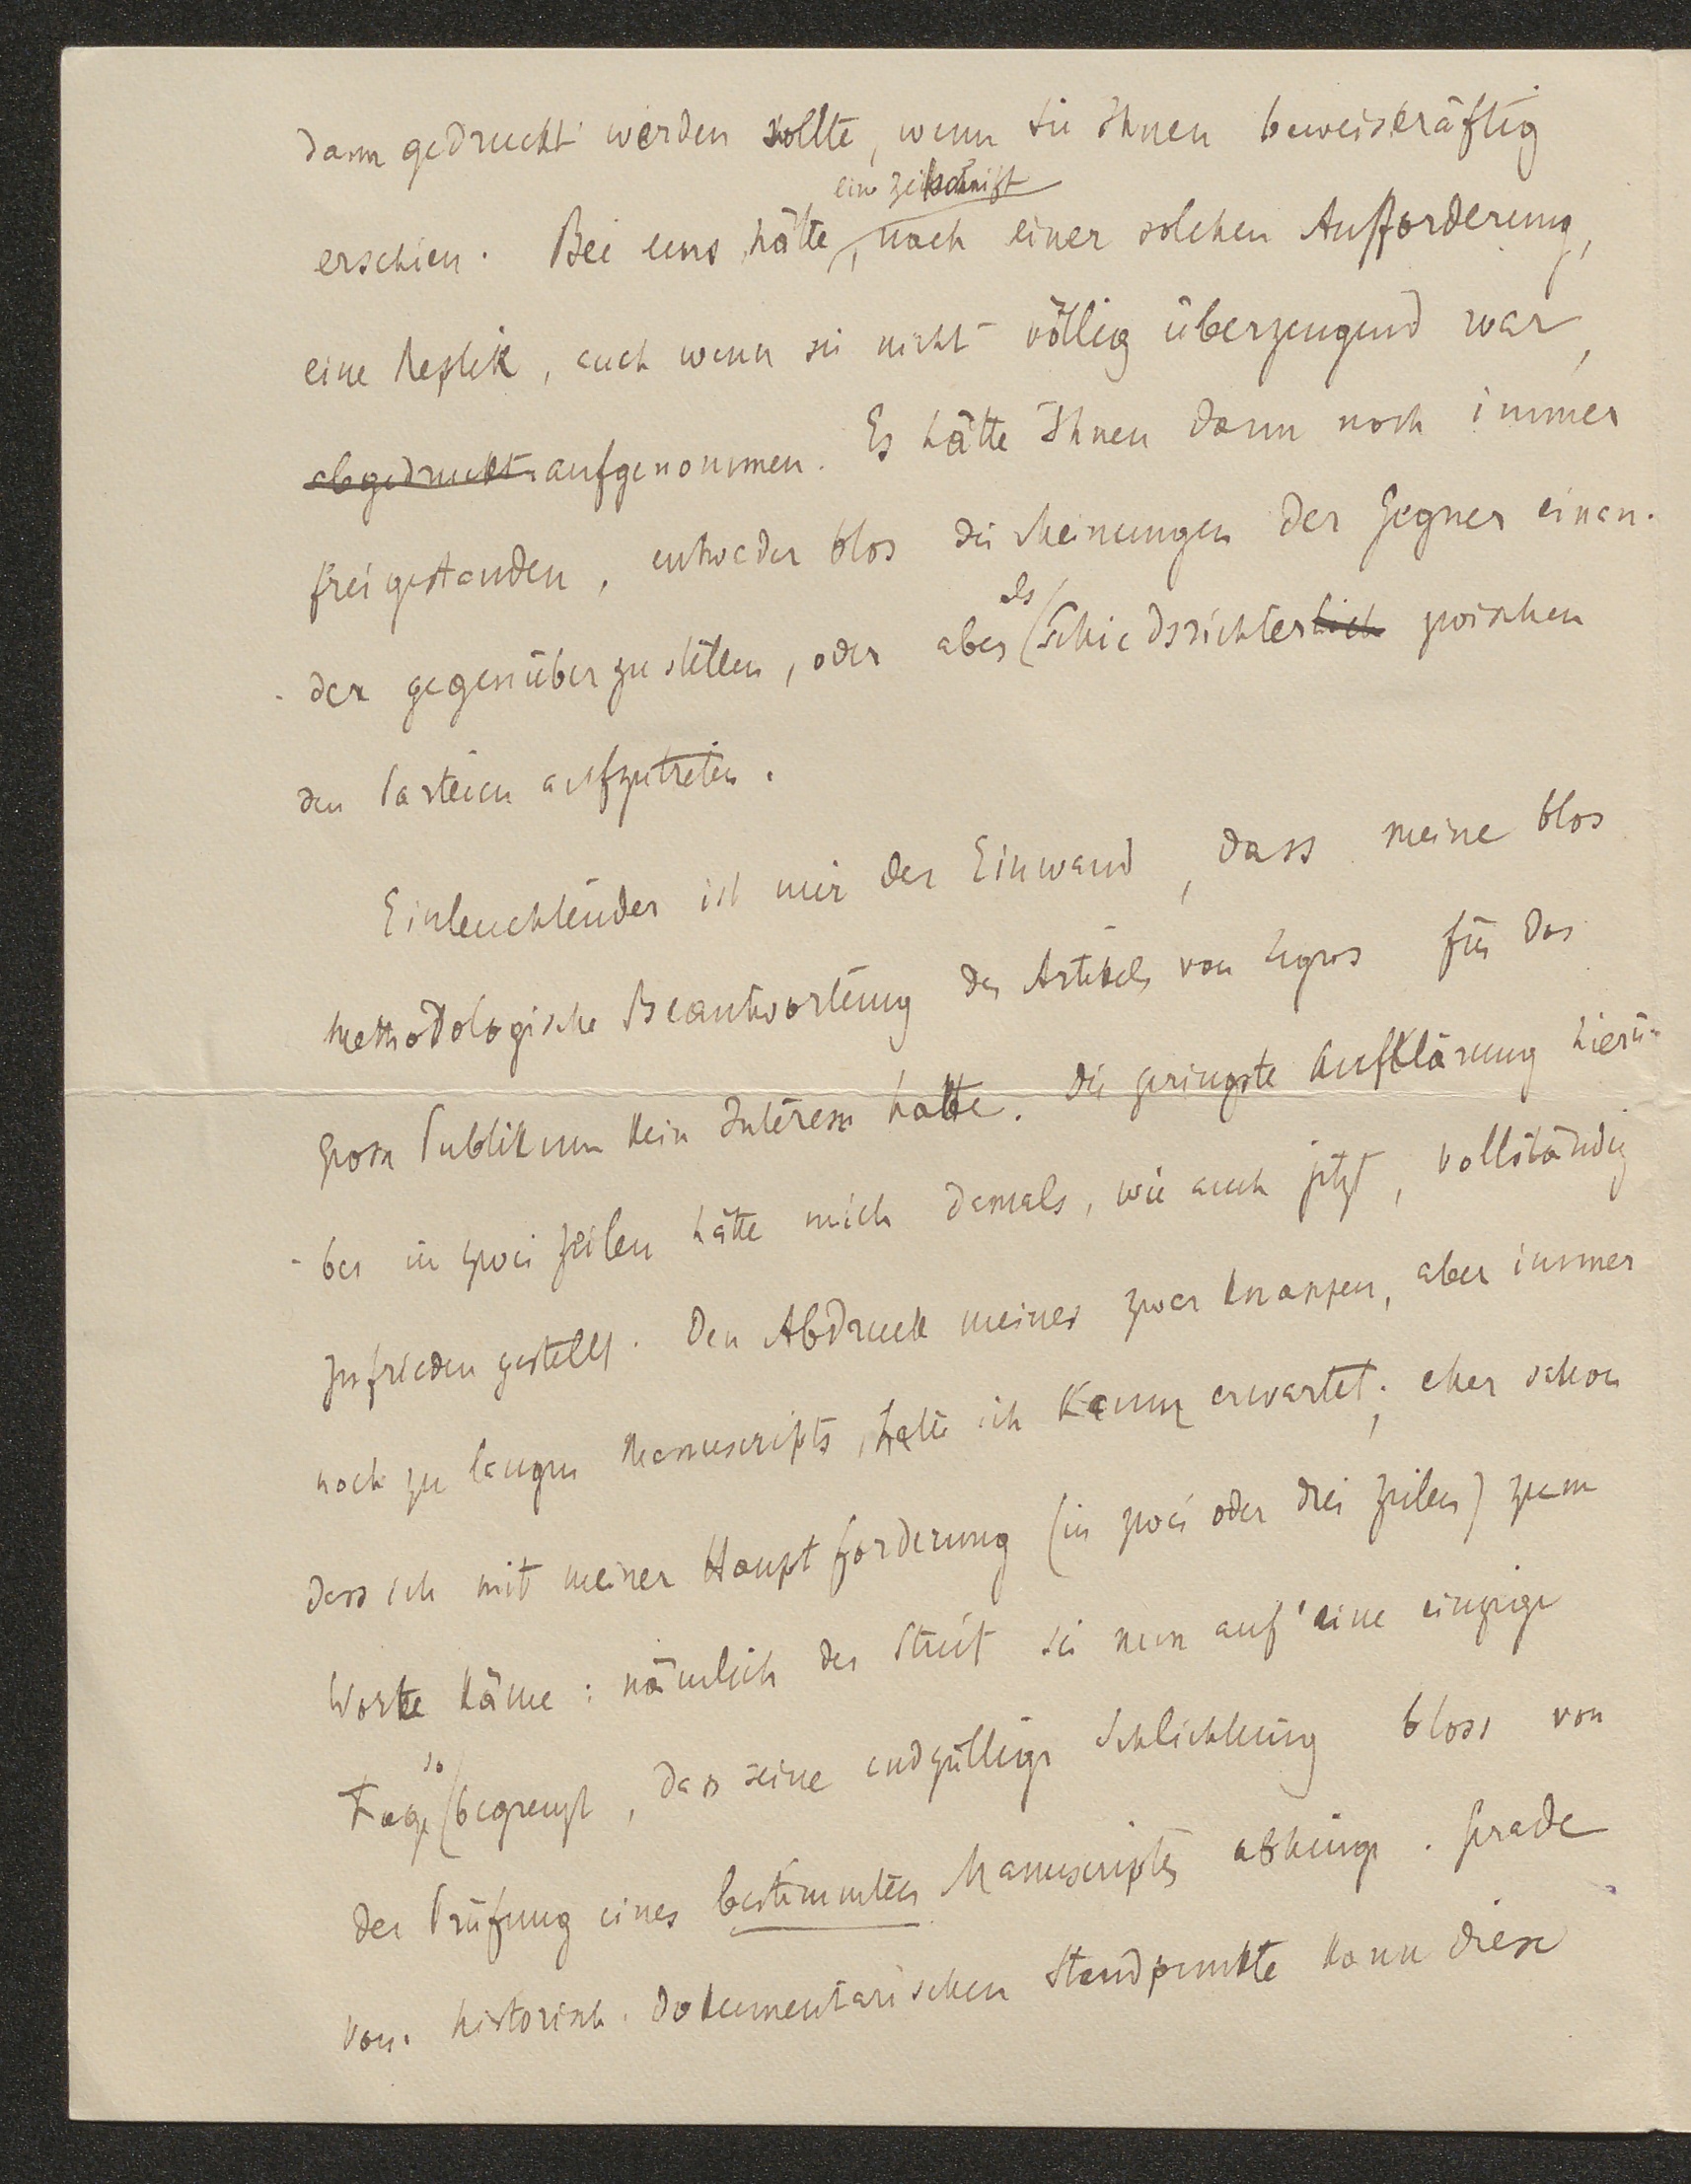 dann gedruckt werden sollte, wenn sie Ihnen beweiskräftig
eine Zeitschrift
erschien. Bei uns hätte, nach einer solchen Aufforderung,
eine Replik, auch wenn sie nicht völlig überzeugend war,
abgedruckt aufgenommen. Es hätte Ihnen dann noch immer
freigestanden, entweder blos die Meinungen der Gegner einan-
als
- der gegenüberzustellen, oder aber schiedsrichterlich zwischen
den Parteien aufzutreten.
Einleuchtender ist mir der Einwand, dass meine blos
methodologische Beantwortung des Artikels von Legros für das
grosse Publikum kein Interesse hatte. Die geringste Aufklärung hierü-
- ber in zwei Zeilen hätte mich damals, wie auch jetzt, vollständig
zufrieden gestellt. Den Abdruck meines zwar knappen, aber immer
noch zu langen Manuscripts, hatte ich kaum erwartet; eher schon
dass ich mit meiner Hauptforderung (in zwei oder drei Zeilen) zum
Worte käme: nämlich der Streit sei nun auf eine einzige
so
Frage begrenzt, dass seine endgültige Schlichtung bloss von
der Prüfung eines bestimmten Manuscriptes abhinge. Gerade
vom historisch-dokumentarischen Standpunkte kann diese